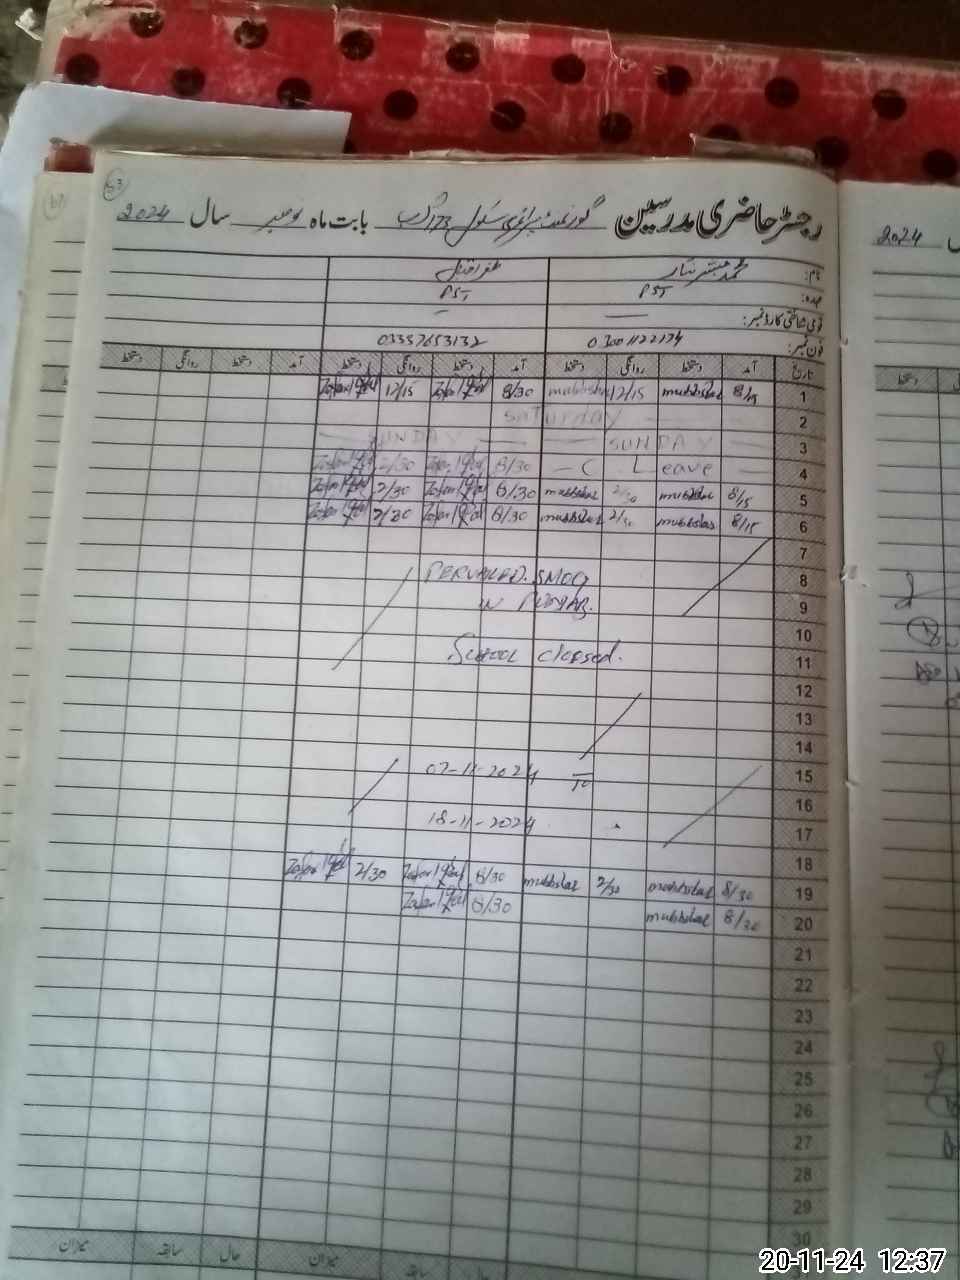 63
رجسٹر حاضری مدرسین گورنمنٹ پرائمری سکول 173 گ ب بابت ماہ نومبر سال 2024
2024
نام: محمد مبشر ظفر اقبال
عہدہ: PST PST
قومی شناختی کارڈ نمبر: — —
فون نمبر: 03337653132
تاریخ آمد دستخط روانگی دستخط آمد دستخط روانگی دستخط آمد دستخط روانگی دستخط
1 8/15 mubbshar 12/15 mubbshar 8/30 Zafar Iqbal 12/15 Zafar Iqbal
2 Saturday
3 SUNDAY SUNDAY
4 — C Leave — 8/30 Zafar Iqbal 2/30 Zafar Iqbal
5 8/15 mubbshar 2/30 mubbshar 8/30 Zafar Iqbal 2/30 Zafar Iqbal
6 8/15 mubbshar 2/30 mubbshar 8/30 Zafar Iqbal 2/30 Zafar Iqbal
7
8 PERVAILED. SMOG
9 IN PUNJAB.
10
11 School closed.
12
13
14
15 07-11-2024 To
16
17 18-11-2024
18
19 8/30 mubbshar 2/30 mubbshar 8/30 Zafar Iqbal 2/30 Zafar Iqbal
20 8/30 mubbshar 8/30 Zafar Iqbal
21
22
23
24
25
26
27
28
29
30
میزان سابقہ حال میزان سابقہ حال
20-11-24 12:37